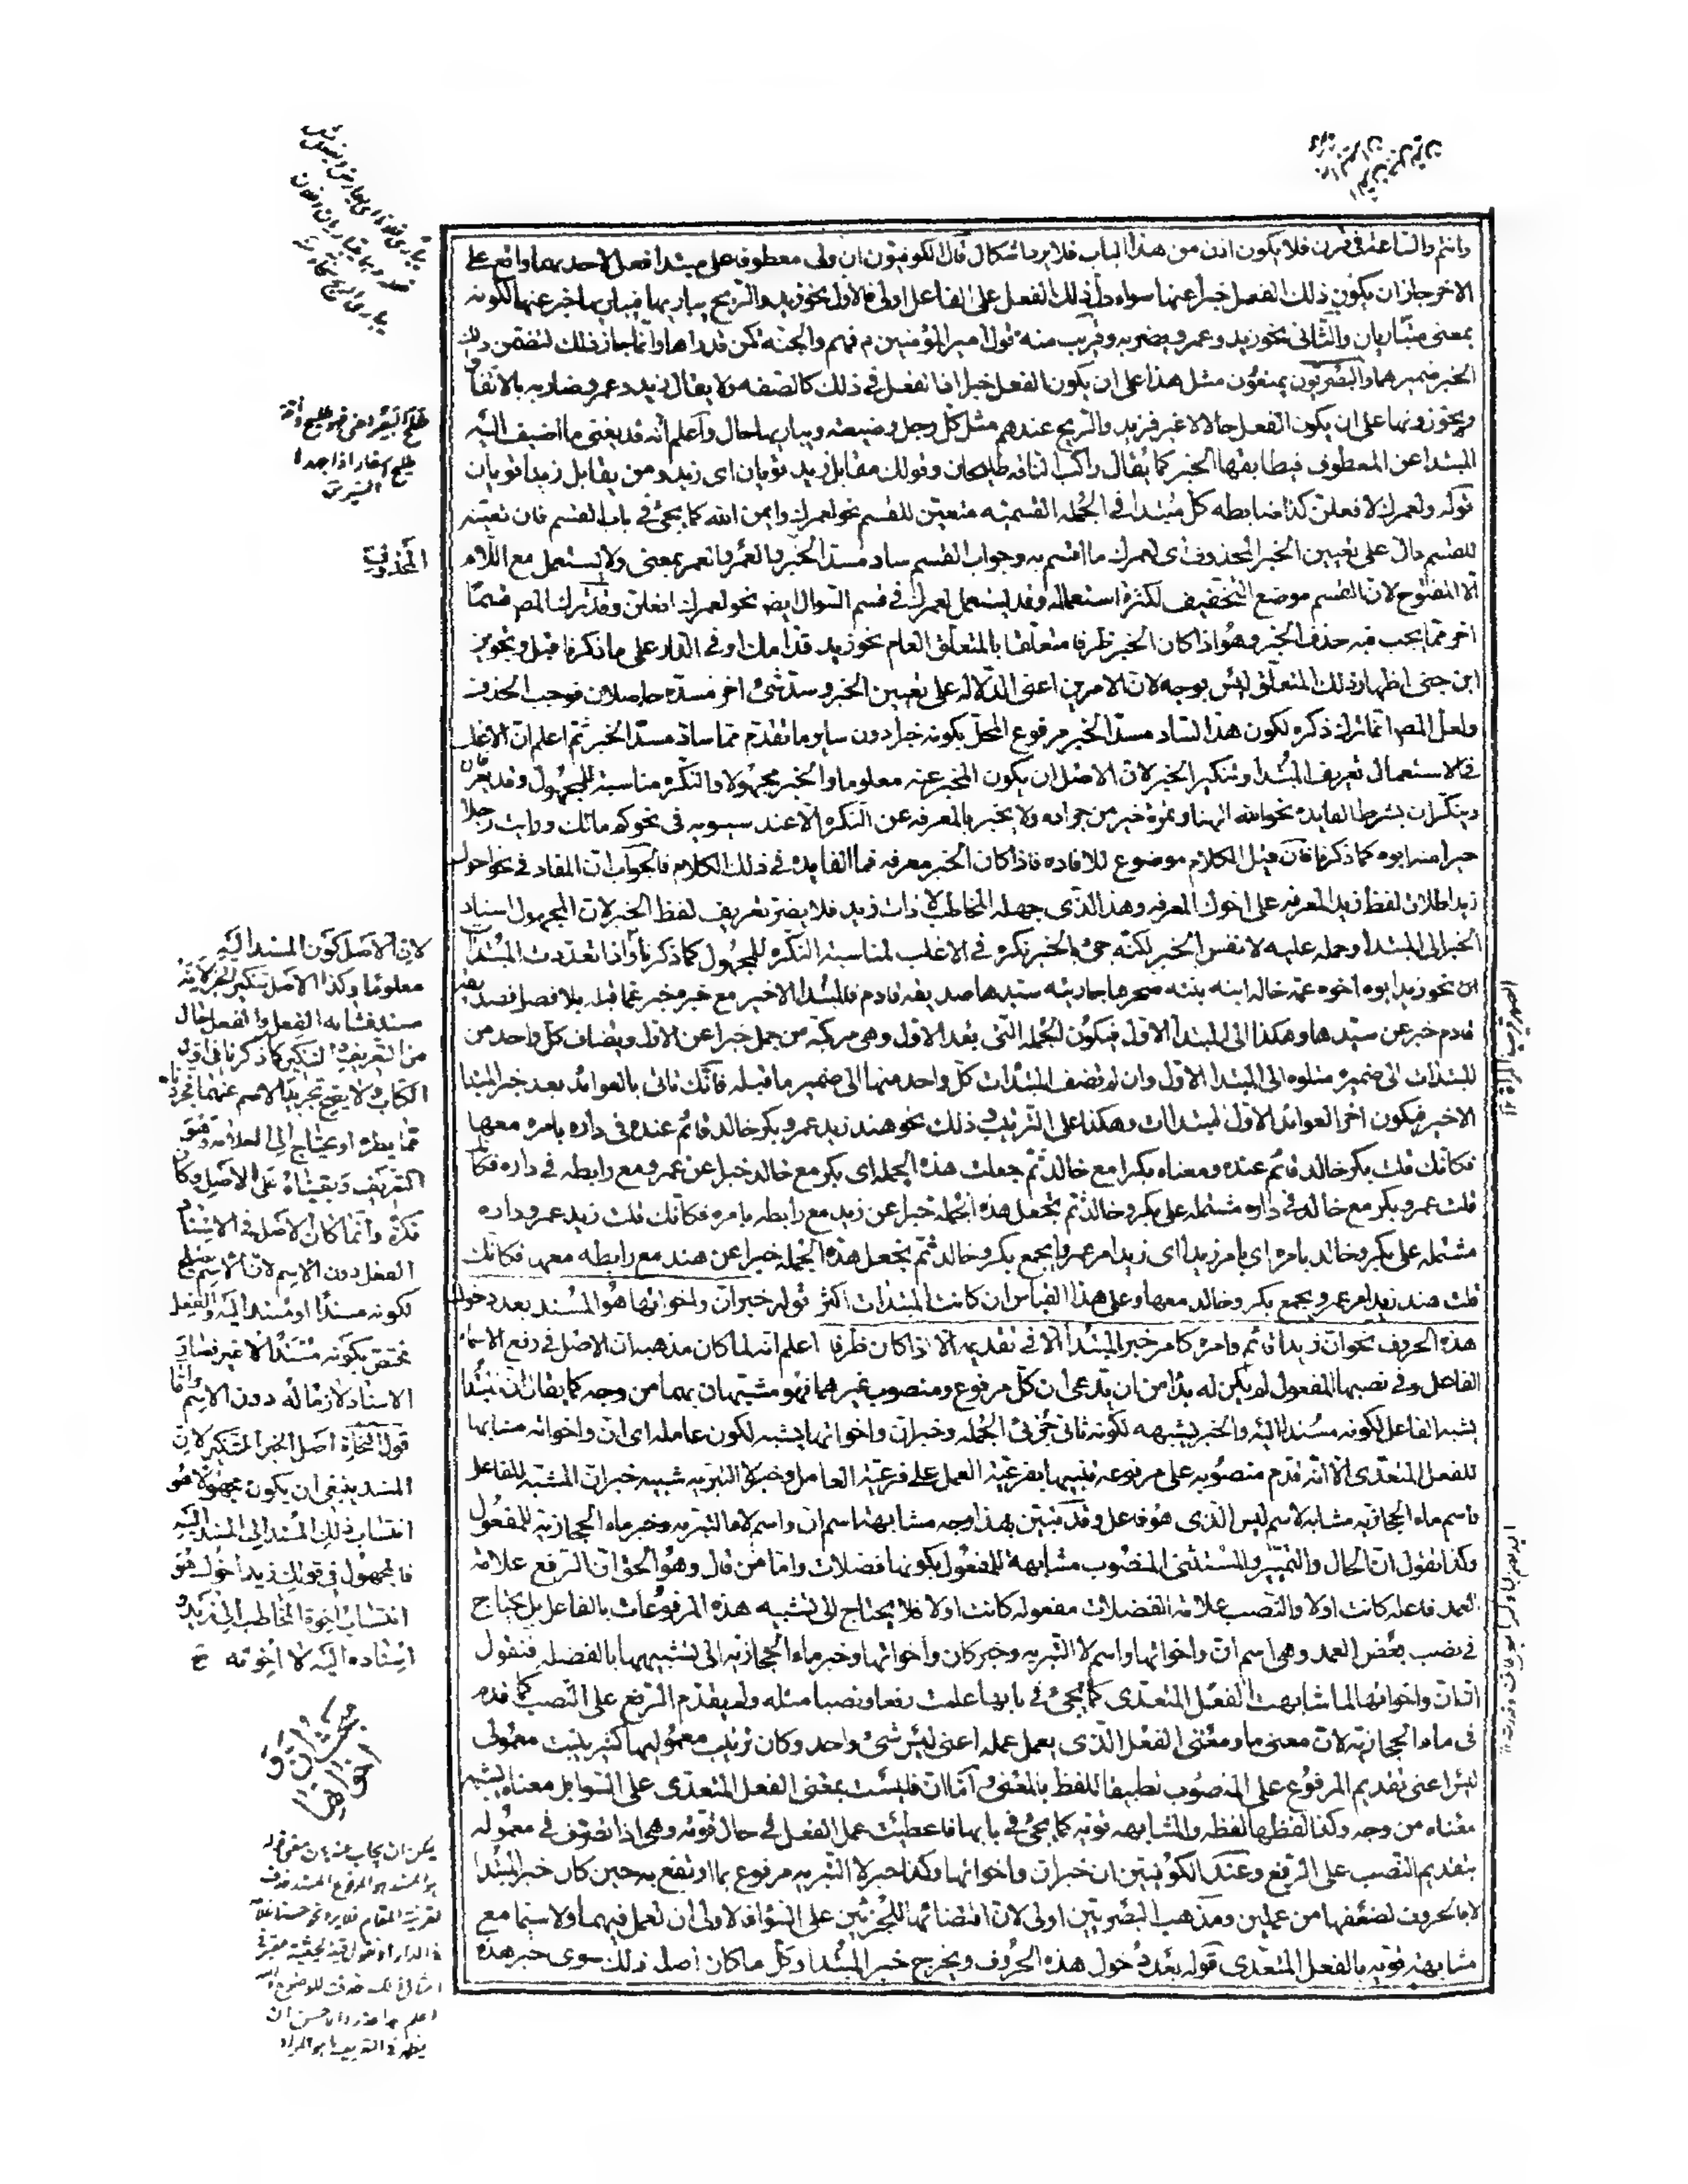 وانتم والساعة في قرن فلا يكون اذن من هذا الباب فلا يرد اشكال قال الكوفيون ان ولى معطوفا على مبتدا فعل لاحدهما واقع على
الاخر جاز ان يكون ذلك الفعل خبرا عنهما سواء دل ذلك الفعل على الفاعل اولى فالاول نحو زيد والريح يباريها فيباريها خبر عنهما لكونه
بمعنى متباريان والثانى نحو زيد وعمرو يضربه وقريب منه قول امير المؤمنين م فهم والجنة كمن قد راها وانما جاز ذلك لتضمن ذلك
الخبر ضميرهما والبصريون يمنعون مثل هذا على ان يكون الفعل خبرا اذا لفعل في ذلك كالصفة ولا يقال زيد وعمرو ضاربه بالاتفاق
ويجوزونها على ان يكون الفعل حالا لا غير فزيد والريح عندهم مثل كل رجل وضيعته ويباريها حال واعلم انه قد يغنى ما اضيف اليه
المبتدا عن المعطوف فيطابقها الخبر كما يقال راكب الناقة طليحان وقولك مقابل زيد ثوبان اى زيد ومن يقابل زيدا ثوبان
قوله ولعمرك لافعلن كذا ضابطه كل مبتدا في الجملة القسمية متعين للقسم نحو لعمرك وايمن الله كما يجئ في باب القسم فان تعينه
للقسم دال على تعيين الخبر المحذوف اى لعمرك ما اقسم به وجواب القسم ساد مسد الخبر والعمر والعمر بمعنى ولا يستعمل مع اللام
الا المفتوح لان القسم موضع التخفيف لكثرة استعماله وقد يستعمل لعمرك في قسم السوال ايضا نحو لعمرك افعلن وقد ترك المص قسما
اخر مما يجب فيه حذف الخبر وهو اذا كان الخبر ظرفا متعلقا بالمتعلق العام نحو زيد قدامك او في الدار على ما ذكرنا قبل وتجويز
ابن جنى اظهار ذلك المتعلق ليس بوجه لان الامرين اعنى الدلالة على تعيين الخبر وسد شئ اخر مسده حاصلان فوجب الحذف
ولعل المص انما ترك ذكره لكون هذا الساد مسد الخبر مرفوع المحل بكونه خبرا دون ساير ما تقدم مما ساد مسد الخبر ثم اعلم ان الاغلب
في الاستعمال تعريف المبتدا وتنكير الخبر لان الاصل ان يكون المخبر عنه معلوما والخبر مجهولا والنكرة مناسبة للمجهول وقد يعرفان
وينكران بشرط الفايدة نحو الله الهنا وتمرة خير من جرادة ولا يخبر بالمعرفة عن النكرة الا عند سيبويه في نحو كم مالك ورايت رجلا
خيرا منه ابوه كما ذكرنا فان قيل الكلام موضوع للافادة فاذا كان الخبر معرفة فما الفايدة في ذلك الكلام فالجواب ان المفاد في نحو اخوك
زيد اطلاق لفظ زيد المعرفة على اخوك المعرفة وهذا الذى جهله المخاطب لا ذات زيد فلا يضر تعريف لفظ الخبر لان المجهول اسناد
الخبر الى المبتدا وحمله عليه لا نفس الخبر لكنه جئ بالخبر نكرة في الاغلب لمناسبة النكرة للمجهول كما ذكرنا واذا تعددت المبتدآت
نحو زيد ابوه اخوه عمه خاله ابنه بنته صهرها جاريته سيدها صديقه قادم فالمبتدا الاخير مع خبره خبر عما قبله بلا فصل فصديقه
قادم خبر عن سيدها وهكذا الى المبتدا الاول فيكون الجملة التى بعد الاول وهى مركبة من جمل خبرا عن الاول ويضاف كل واحد من
المبتدات الى ضميره متلوه الى المبتدا الاول وان لم تضف المبتدات كل واحد منها الى ضمير ما قبله فانك تاتى بالعوائد بعد خبر المبتدا
الاخير فيكون اخر العوائد لاول المبتدات وهكذا على الترتيب وذلك نحو هند زيد عمرو بكر خالد قائم عنده في داره بامره معها
فكانك قلت بكر خالد قائم عنده ومعناه بكرا مع خالد ثم جعلت هذه الجملة اى بكر مع خالد خبرا عن عمرو مع رابطه في داره فكانك
قلت عمرو بكر مع خالد في داره مشتملة على بكر وخالد ثم تجعل هذه الجملة خبرا عن زيد مع رابطه بامره فكانك قلت زيد عمرو داره
مشتملة على بكر وخالد بامره اى بامر زيد اى زيد امر عمرا بجمع بكر وخالد ثم تجعل هذه الجملة خبرا عن هند مع رابطه معها فكانك
قلت هند زيد امر عمرو بجمع بكر وخالد معها وعلى هذا القياس ان كانت المبتدات اكثر قوله خبر ان واخواتها هو المسند بعد دخول
هذه الحروف نحو ان زيدا قائم وامره كامر خبر المبتدا الا في تقديمه الا اذا كان ظرفا اعلم انه لما كان مذهبه ان الاصل في رفع الاسماء
الفاعل وفي نصبها المفعول لم يكن له بدا من ان يدعى ان كل مرفوع ومنصوب غيرهما فهو مشبهان بهما من وجه كما يقال ان المبتدا
يشبه الفاعل لكونه مسندا اليه والخبر يشبهه لكونه ثانى جزئى الجملة وخبر ان واخواتها يشبه لكون عامله اى ان واخواته مشابها
للفعل المتعدى الا انه قدم منصوبه على مرفوعه تنبيها بفرعية العمل على فرعية العامل وخبر لا التبرية شبيه خبر ان المشبه للفاعل
واسم ما ولا الحجازية مشابه لاسم ليس الذى هو فاعل وقد تبين بهذا وجه مشابهة اسم ان واسم لا التبرية وخبر ما ولا الحجازية للمفعول
وكذا نقول ان الحال والتمييز والمستثنى المنصوب مشابهة للمفعول بكونها فضلات واما من قال وهو الحق ان الرفع علامة
العمد فاعلة كانت اولا والنصب علامة الفضلات مفعولة كانت اولا فلا يحتاج الى تشبيه هذه المرفوعات بالفاعل بل يحتاج
في نصب بعض العمد وهى اسم ان واخواتها واسم لا التبرية وخبر كان واخواتها وخبر ما ولا الحجازية الى تشبيهها بالفضلة فنقول
ان ان واخواتها لما شابهت الفعل المتعدى كما يجئ في بابها عملت رفعا ونصبا مثله ولم يقدم الرفع على النصب كما قدم
في ما ولا الحجازية لان معنى ما ومعنى الفعل الذى يعمل عمله اعنى ليس شئ واحد وكان ترتيب معموليها كترتيب معمولى
ليس اعنى تقديم المرفوع على المنصوب تطبيقا للفظ بالمعنى واما ان فليست بمعنى الفعل المتعدى على السواء بل معناه يشبه
معناه من وجه وكذا لفظها لفظه والمشابهة قوية كما يجئ في بابها فاعطيت عمل الفعل في حال قوته وهى اذا تصرف في معموله
بتقديم النصب على الرفع وعند الكوفيين ان خبر ان واخواتها وكذا خبر لا التبرية مرفوع بما ارتفع به حين كان خبر المبتدا
لا بالحروف لضعفها من عملين ومذهب البصريين اولى لان اقتضائها للجزئين على السواء فالاولى ان تعمل فيهما ولا سيما مع
مشابهة قوية بالفعل المتعدى قوله بعد دخول هذه الحروف ويخرج خبر المبتدا وكل ما كان اصله ذلك سوى خبر هذه
طليح اسفار اذا جهده
السير
المحذوف
لان الاصل كون المسند اليه
معلوما وكذا الاصل تنكير الخبر لانه
مسند فشابه الفعل والفعل خال
من التعريف والتنكير كما ذكرنا في اول
الكتاب ولا يصح تجريد الاسم عنهما فجردناه
مما يطرء او يحتاج الى العلامة وهو
التعريف وبقيناه على الاصل وكان
نكرة وانما كان الاصل في الاسناد
الفعل دون الاسم لان الاسم يصلح
لكونه مسندا او مسندا اليه والفعل
مختص بكونه مسندا لا غير فصار
الاسناد لازما له دون الاسم واما
قول النحاة اصل الخبر التنكير لان
المسند ينبغى ان يكون مجهولا هو
انتساب ذلك المسند الى المسند اليه
فالمجهول في قولك زيد اخوك هو
انتساب اخوة المخاطب الى زيد و
اسناده اليه لا اخوته
مبحث ان و
اخواتها
يمكن ان يجاب عنه بان معنى قوله
هو المسند هو المرفوع المسند فحذف
لقرينة المقام